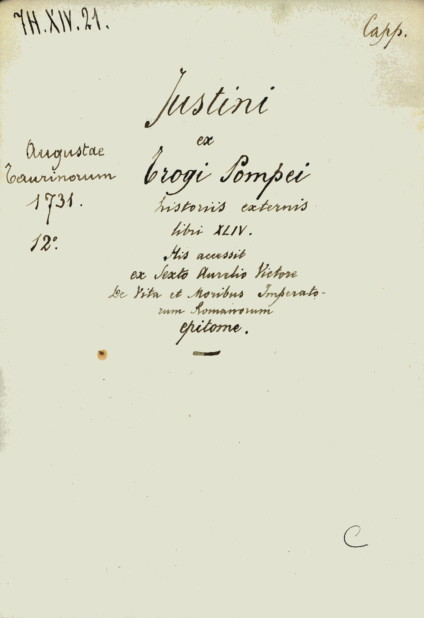 7H.XIV.21.
Capp.
Justini
ex
Trogi Pompei
historiis externis
libri XLIV.
His accessit
ex Sexto Aurelio Victore
De Vita et Moribus Imperato-
rum Romanorum
epitome.
Augustae
Taurinorum
1731.
12°.
C